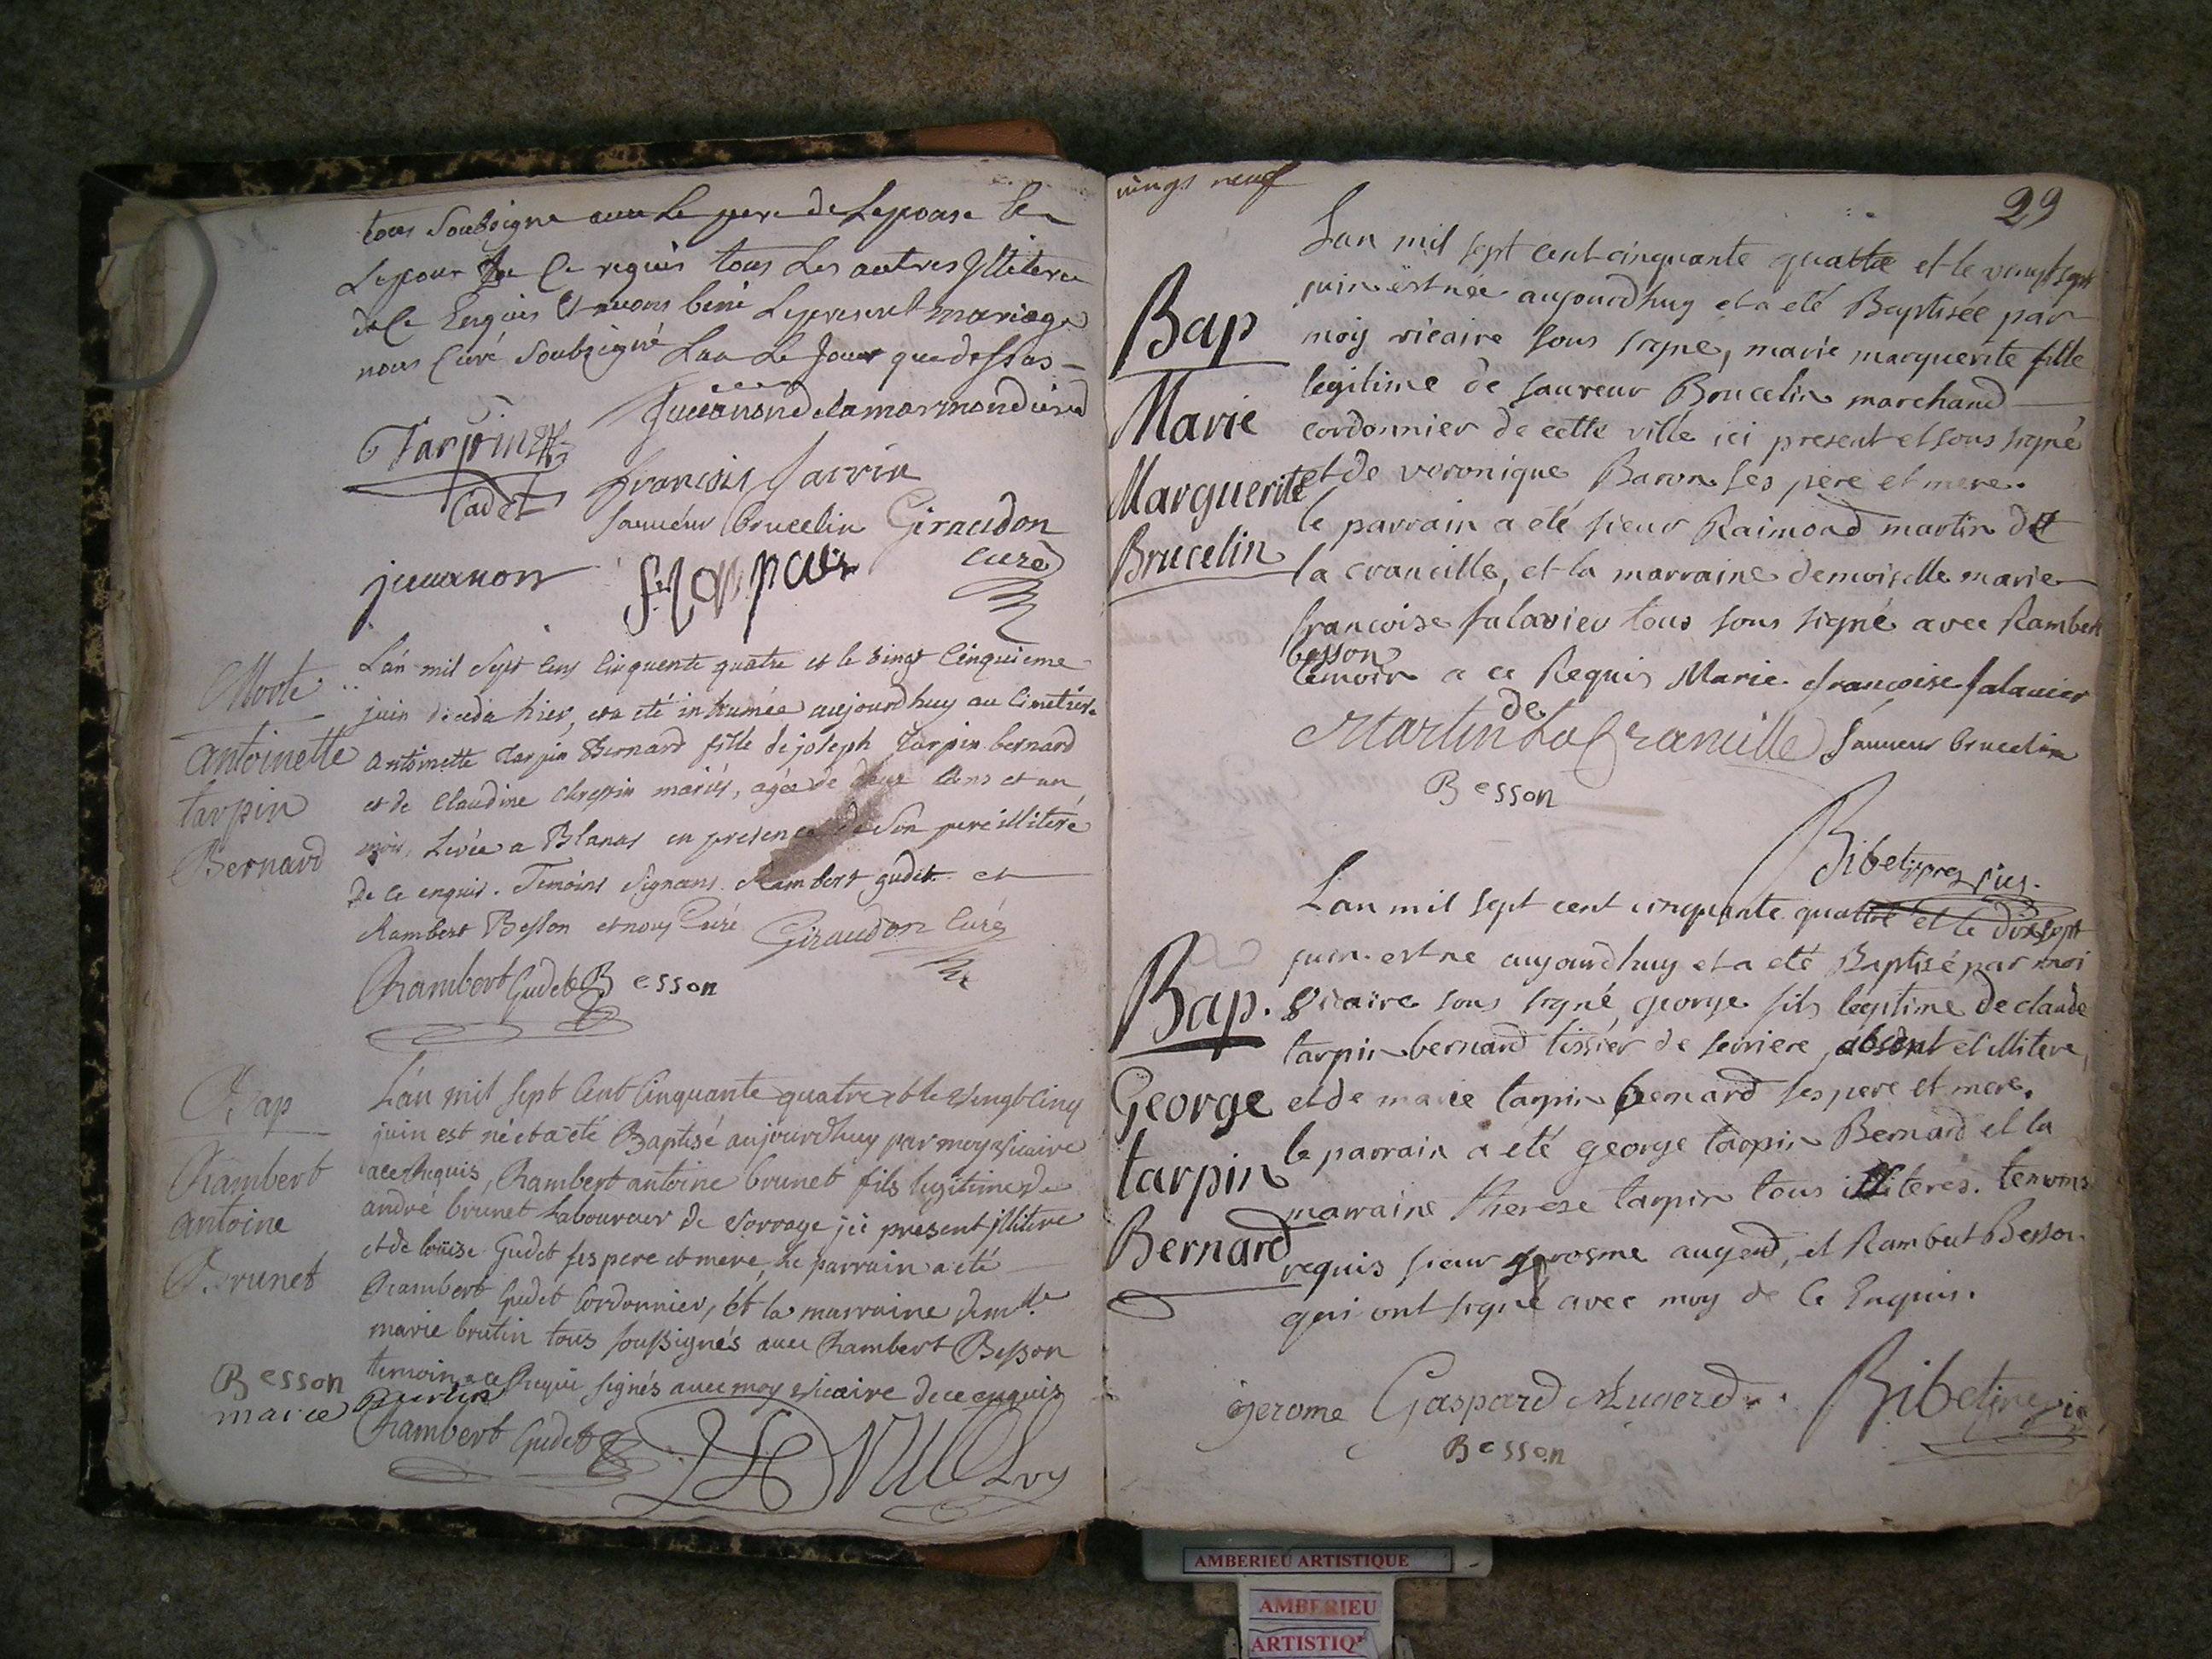 tous soubsigne avec le pere de Lepouse
Lepoux de ce requis tous Les autres Illiteres
de ce Enquis Et avons beni Lepresent mariage
nous Curé soubsigné Lan Le Jour que dessus
Juvanon delamarmondiere
Tarpin
Cadet
françois
sauveur brucelin Giraudon
curé
juvanon
Morte
antoinette
tarpin
Bernard
L'an mil sept cens Cinquente quatre et le vingt Cinquieme
juin deceda hier, et a eté inhumée aujourdhuy au Cimetiere
antoinette Tarpin Bernard fille de joseph Tarpin bernard
et de Claudine Chrepin mariés, agée de deux ans et un
mois, Levée a Blanas en presence de son pere illiteré
de ce enquis. Temoins signans Rambert gudet et
Rambert Besson et nous Curé Giraudon Curé
Rambert Gudet Besson
Bap
Rambert
antoine
Brunet
L'an mil sept Cent Cinquante quatre et le vingt Cinq
juin est né et a été Baptisé aujourdhuy par moy vicaire
a ce Requis, Rambert antoine brunet fils legitime de
andré brunet Laboureur de Sorrage ici present illitere
et de loüise Gudet ses pere et mere, le parrain a eté
Rambert Gudet Cordonnier, et la marraine demlle
marie brutin tous soussignés avec Rambert Besson
temoin a ce Requi signés avec moy vicaire de ce enquis
Besson
marie
Rambert Gudet
vings neuf
29
Bap
Marie
Marguerite
Brucelin
Lan mil sept cent cinquante quattre et le vingt sept
juin est née aujourdhuy et a eté Baptisée par
moy vicaire sous signé, marie marguerite fille
legitime de sauveur Brucelin marchand
cordonnier de cette ville ici present et sous signé
et de veronique Baron ses pere et mere.
le parrain a été sieur Raimond martin de
la cranville, et la marraine demoiselle marie
francoise falavier tous sous signé avec Rambert
besson
temoin a ce Requis Marie francoise falavier
de
Martin La Granville sauveur brucelin
Besson
Ribet
Bap.
George
tarpin
Bernard
Lan mil sept cent cinquante quattre et le dixsept
juin est ne aujourdhuy et a eté Baptisé par moi
vicaire sous signé, george fils legitime de claude
tarpin bernard tissier de serriere, absent et illitere,
et de marie tarpin bernard ses pere et mere.
le parrain a été george tarpin Bernard et la
marraine therese tarpin tous illiteres. temoins
requis sieur augerd, et Rambert Besson
qui ont signé avec moy de ce Enquis.
jerome Gaspard Augerd
Besson
Ribet
AMBERIEU ARTISTIQUE
AMBERIEU
ARTISTIQ